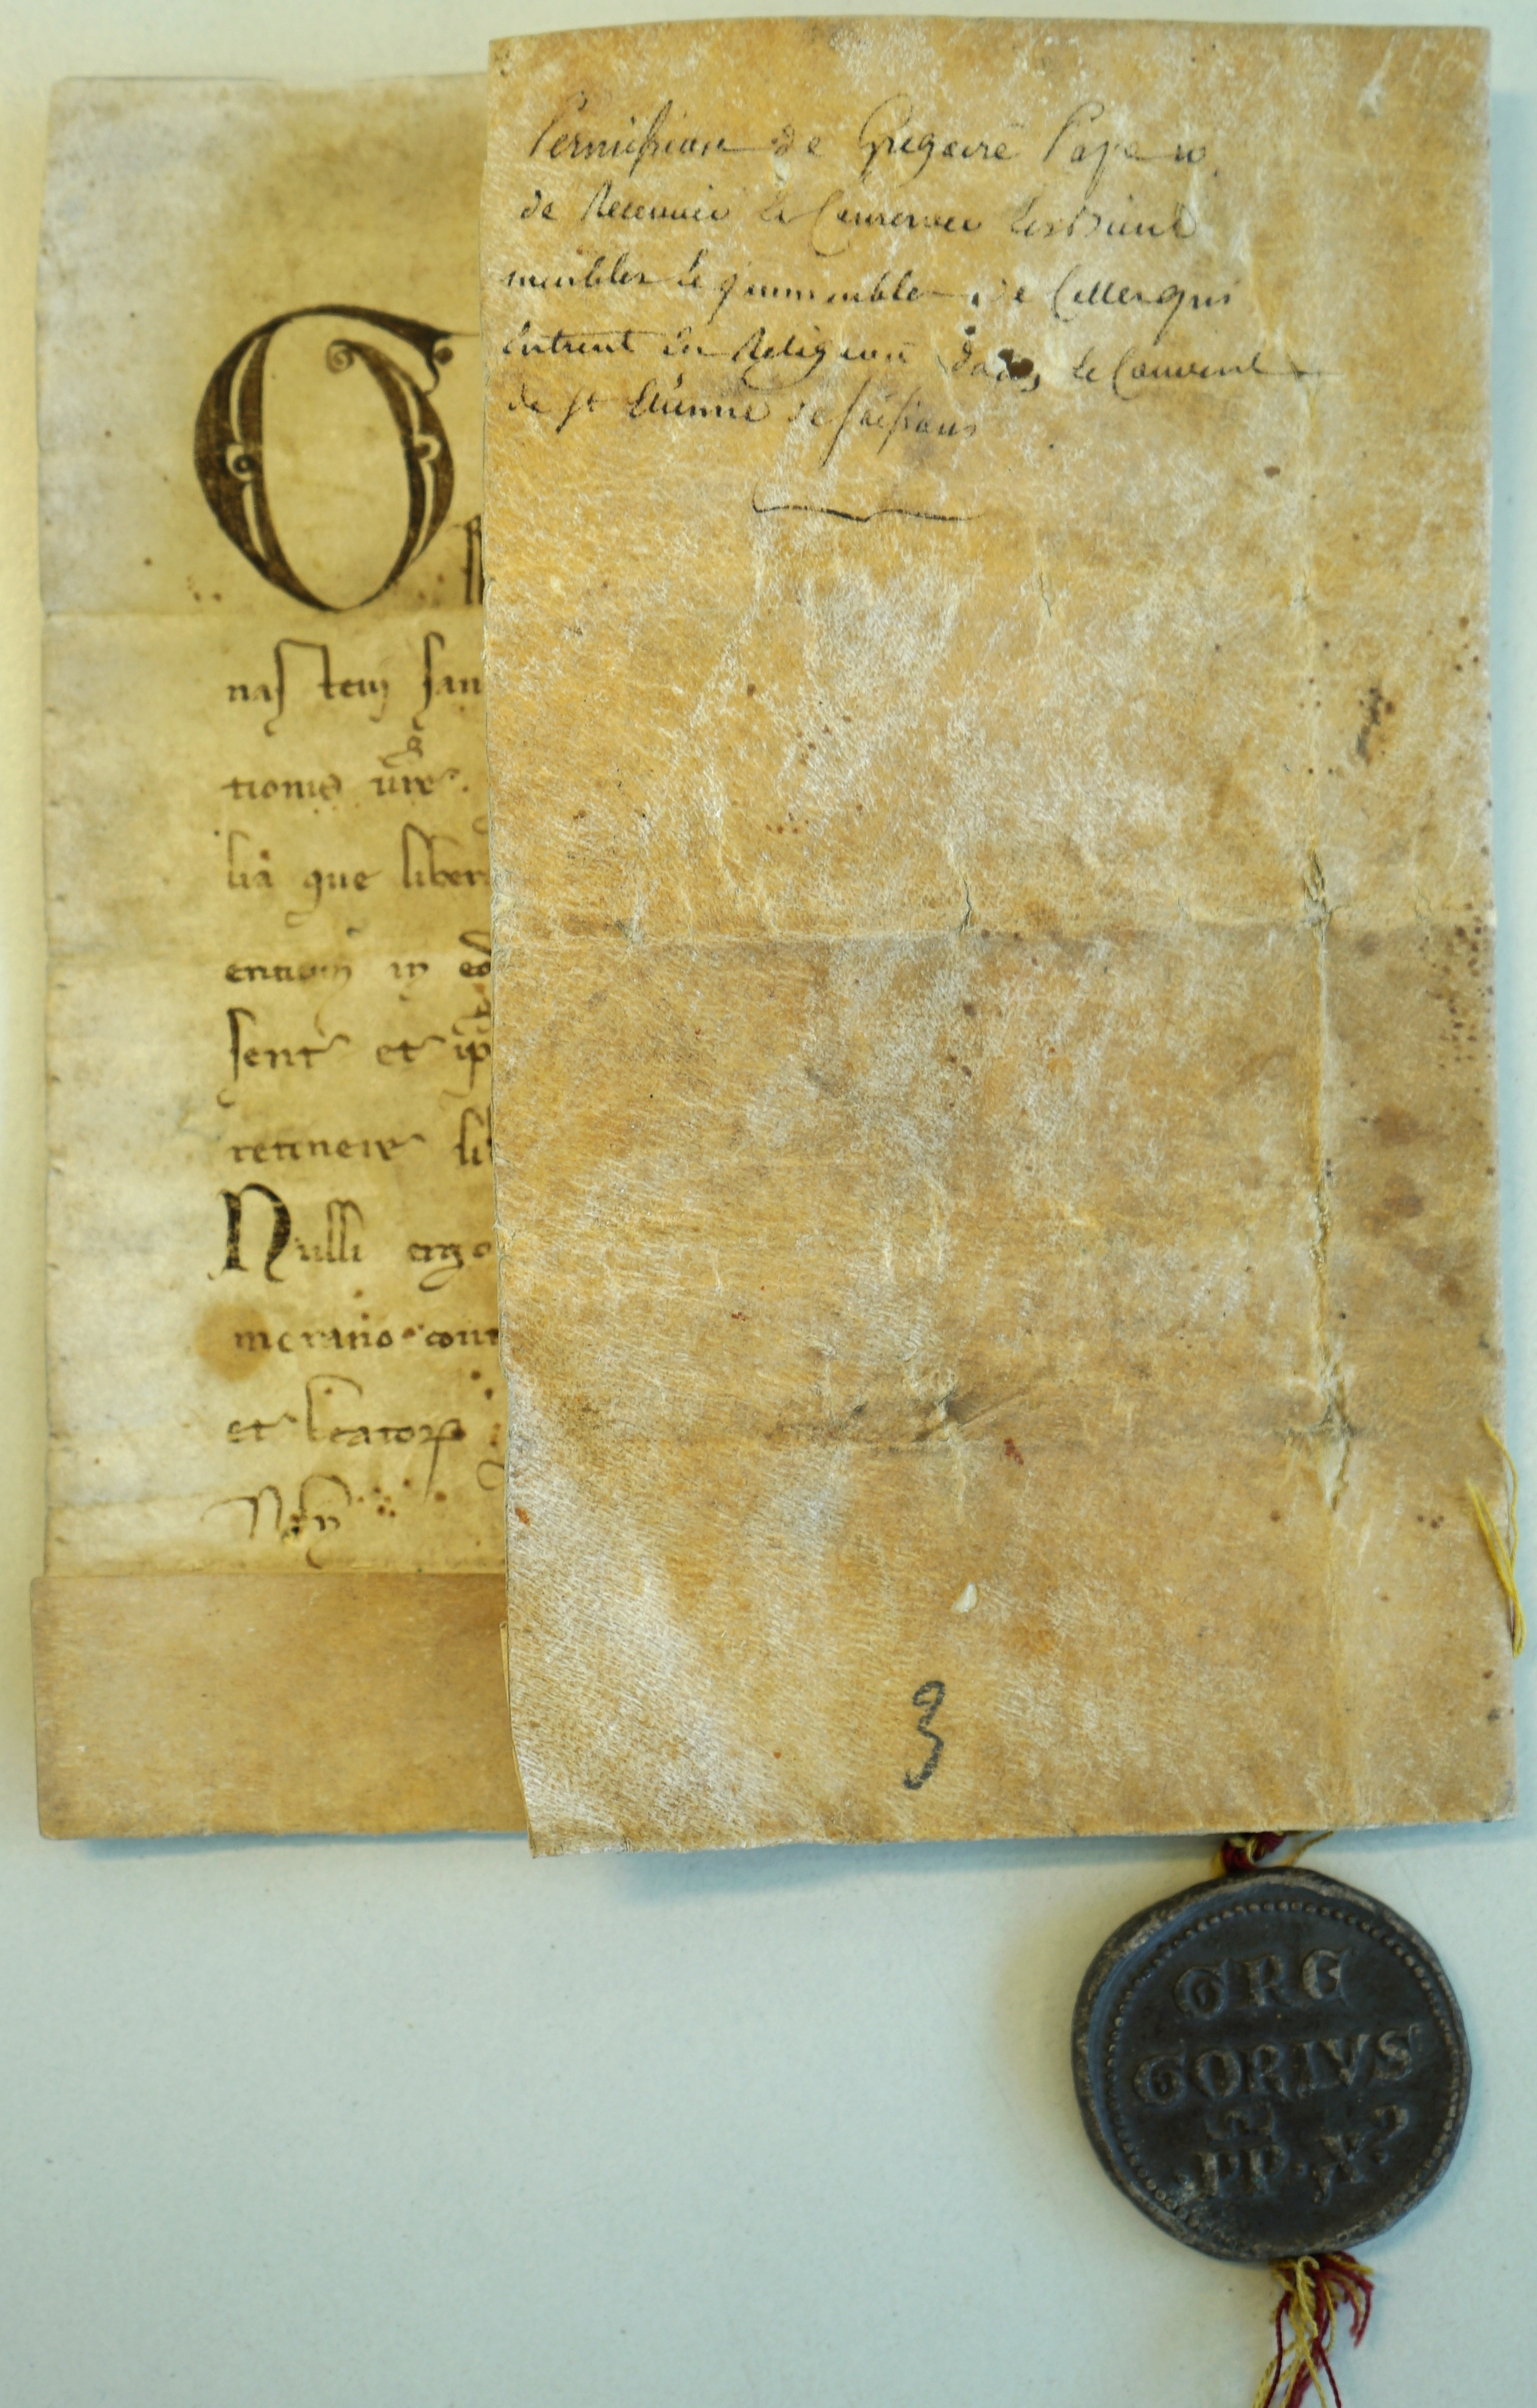 Permission de Gregoire Pape 10
de Recevoir et Conserver Les Biens
meubles et immeubles de Celles qui
Entrent en Religion dans le Couvent
de st Etienne de soissons
G
nas tem san
tionis vre
lia que liber
sent et ip
retinere li
Nulli ergo
merario cont
et beator
3
GRE
GORIVS
PP. X